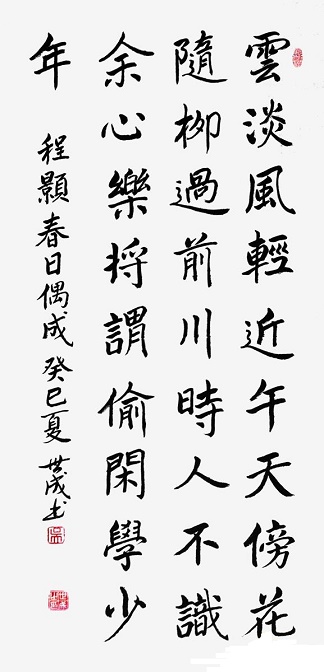 雲淡風輕近午天傍花
隨柳過前川時人不識
余心樂將謂偷閑學少
年
程顥春日偶成癸巳夏世成书